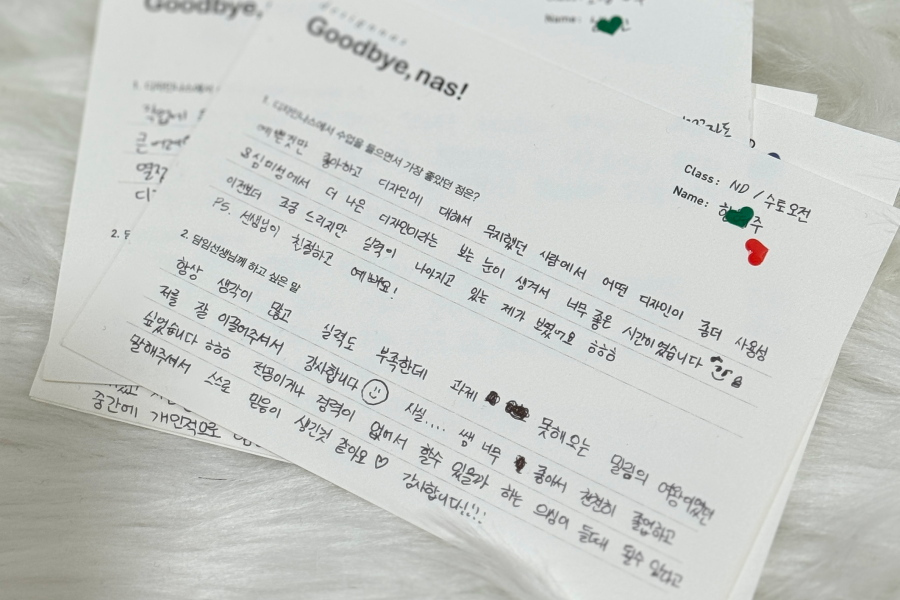 Goodbye,
Name:
designer
Goodbye, nas!
Class: ND / 수토오전
Name: 주
1. 디자인나스에서 수업을 들으면서 가장 좋았던 점은?
예쁜것만 좋아하고 디자인에 대해서 무지했던 사람에서 어떤 디자인이 좀더 사용성
&심미성에서 더 나은 디자인이라는 보는 눈이 생겨서 너무 좋은 시간이였습니다
이전보다 조금 느리지만 실력이 나아지고 있는 제가 보였어요 ㅎㅎㅎ
PS. 선생님이 친절하고 예뻐요!
2. 담임선생님께 하고 싶은 말
항상 생각이 많고 실력도 부족한데 과제 못해오는 밀림의 여왕이였던
저를 잘 이끌어주셔서 감사합니다 사실.... 쌤 너무 좋아서 천천히 졸업하고
싶었습니다 ㅎㅎㅎ 전공이거나 경력이 없어서 할수 있을까 하는 의심이 들때 될수 있다고
말해주셔서 스스로 믿음이 생긴것 같아요 ♡
감사합니다!!!
1. 디자인나스에서 수
작업에
열정
디
2.
중간에 개인적으로